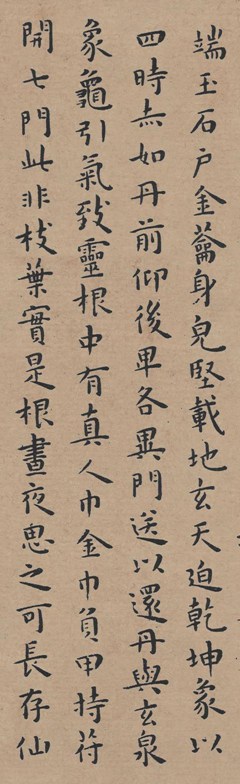 端玉石戶金蘥身皃堅載地玄天迫乾坤象以
四時赤如丹前仰後卑各異門送以還丹與玄泉
象龜引氣致靈根中有真人巾金巾負甲持苻
開七門此非枝葉實是根晝夜思之可長存仙